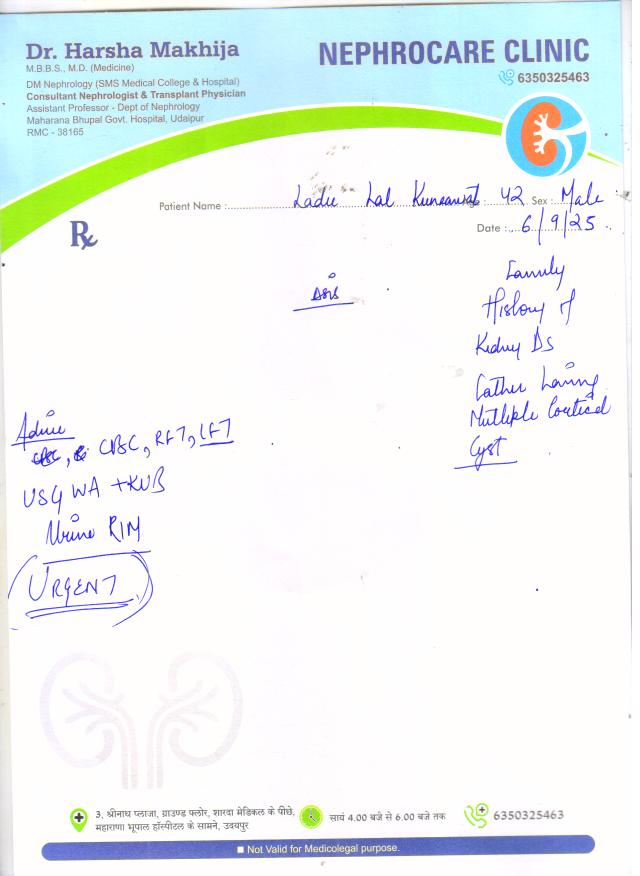 Dr. Harsha Makhija
M.B.B.S., M.D. (Medicine)
DM Nephrology (SMS Medical College & Hospital)
Consultant Nephrologist & Transplant Physician
Assistant Professor - Dept of Nephrology
Maharana Bhupal Govt. Hospital, Udaipur
RMC - 38165
NEPHROCARE CLINIC
6350325463
Patient Name : Ladu Lal 42 Sex : Male
Date : 6/9/25
Rx
Family
History of
Kidney Ds
Father having
Multiple Cortical
Cyst
Advice
CBC, RFT, LFT
USG WA + KUB
Urine R/M
URGENT
3, श्रीनाथ प्लाजा, ग्राउण्ड फ्लोर, शारदा मेडिकल के पीछे,
महाराणा भूपाल हॉस्पीटल के सामने, उदयपुर
सायं 4.00 बजे से 6.00 बजे तक
6350325463
Not Valid for Medicolegal purpose.